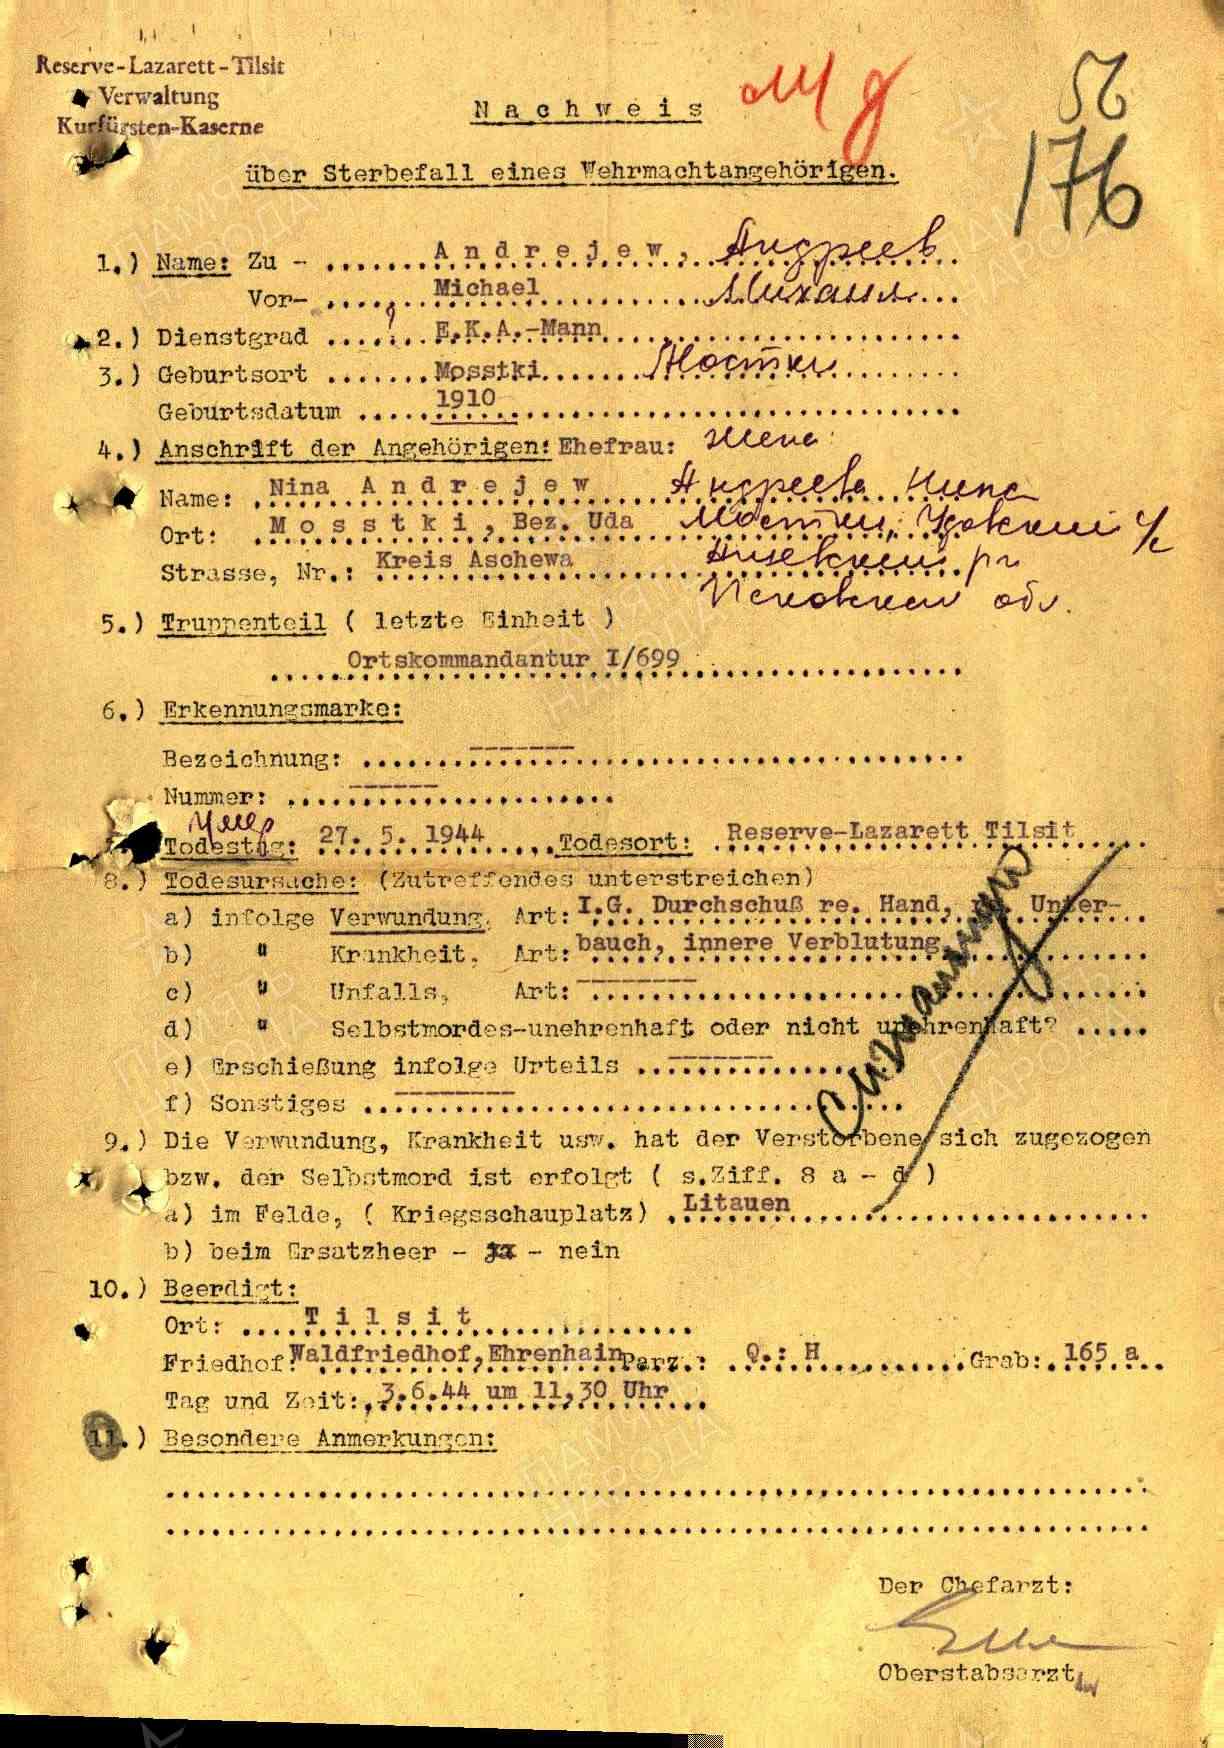 Reserve-Lazarett-Tilsit
Verwaltung
Kurfürsten-Kaserne
56
176
Nachweis
über Sterbefall eines Wehrmachtangehörigen.
1.) Name: Zu - Andrejew, Андреев
Vor- Michael Михаил
2.) Dienstgrad E.K.A.-Mann
3.) Geburtsort Mosstki Мостки
Geburtsdatum 1910
4.) Anschrift der Angehörigen: Ehefrau: жена
Name: Nina Andrejew Андреева Нина
Ort: Mosstki, Bez. Uda Мостки, Удовский с/с
Strasse, Nr.: Kreis Aschewa Ашевский р-н
Псковская обл.
5.) Truppenteil ( letzte Einheit )
Ortskommandantur I/699
6.) Erkennungsmarke:
Bezeichnung: -------
Nummer: ------
умер
Todestag: 27. 5. 1944 Todesort: Reserve-Lazarett Tilsit
8.) Todesursache: (Zutreffendes unterstreichen)
a) infolge Verwundung, Art: I.G. Durchschuß re. Hand, re. Unter-
b) " Krankheit, Art: bauch, innere Verblutung
c) " Unfalls, Art: --------
d) " Selbstmordes-unehrenhaft oder nicht unehrenhaft?
e) Erschießung infolge Urteils -------
f) Sonstiges --------
9.) Die Verwundung, Krankheit usw. hat der Verstorbene sich zugezogen
bzw. der Selbstmord ist erfolgt ( s.Ziff. 8 a - d )
a) im Felde, ( Kriegsschauplatz) Litauen
b) beim Ersatzheer - ja - nein
10.) Beerdigt:
Ort: Tilsit
Friedhof: Waldfriedhof, Ehrenhain Parz.: Q.: H Grab: 165 a
Tag und Zeit: 3.6.44 um 11,30 Uhr
11.) Besondere Anmerkungen:
Der Chefarzt:
Oberstabsarzt
ПАМЯТЬ
НАРОДА